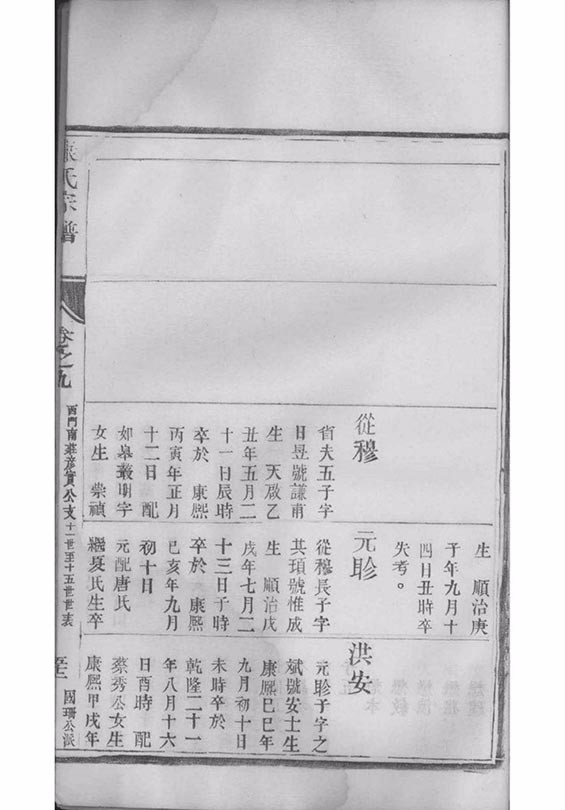 生 順治庚
子年九月十
四日丑時卒
失考。
從穆
省夫五子字
日昱號謙甫
生 天啟乙
丑年五月二
十一日辰時
卒於 康熙
丙寅年正月
十二日 配
如皋叢明字
女生 崇禎
元聄
從穆長子字
其頊號惟成
生 順治戊
戌年七月二
十三日子時
卒於 康熙
己亥年九月
初十日
元配唐氏
繼夏氏生卒
洪安
元聄子字之
斌號安士生
康熙己巳年
九月初十日
未時卒於
乾隆二十一
年八月十六
日酉時 配
蔡秀公女生
康熙甲戌年
氏宗譜
卷之九
西門南莊彥賓公支十一世至十五世世表
國珊公派